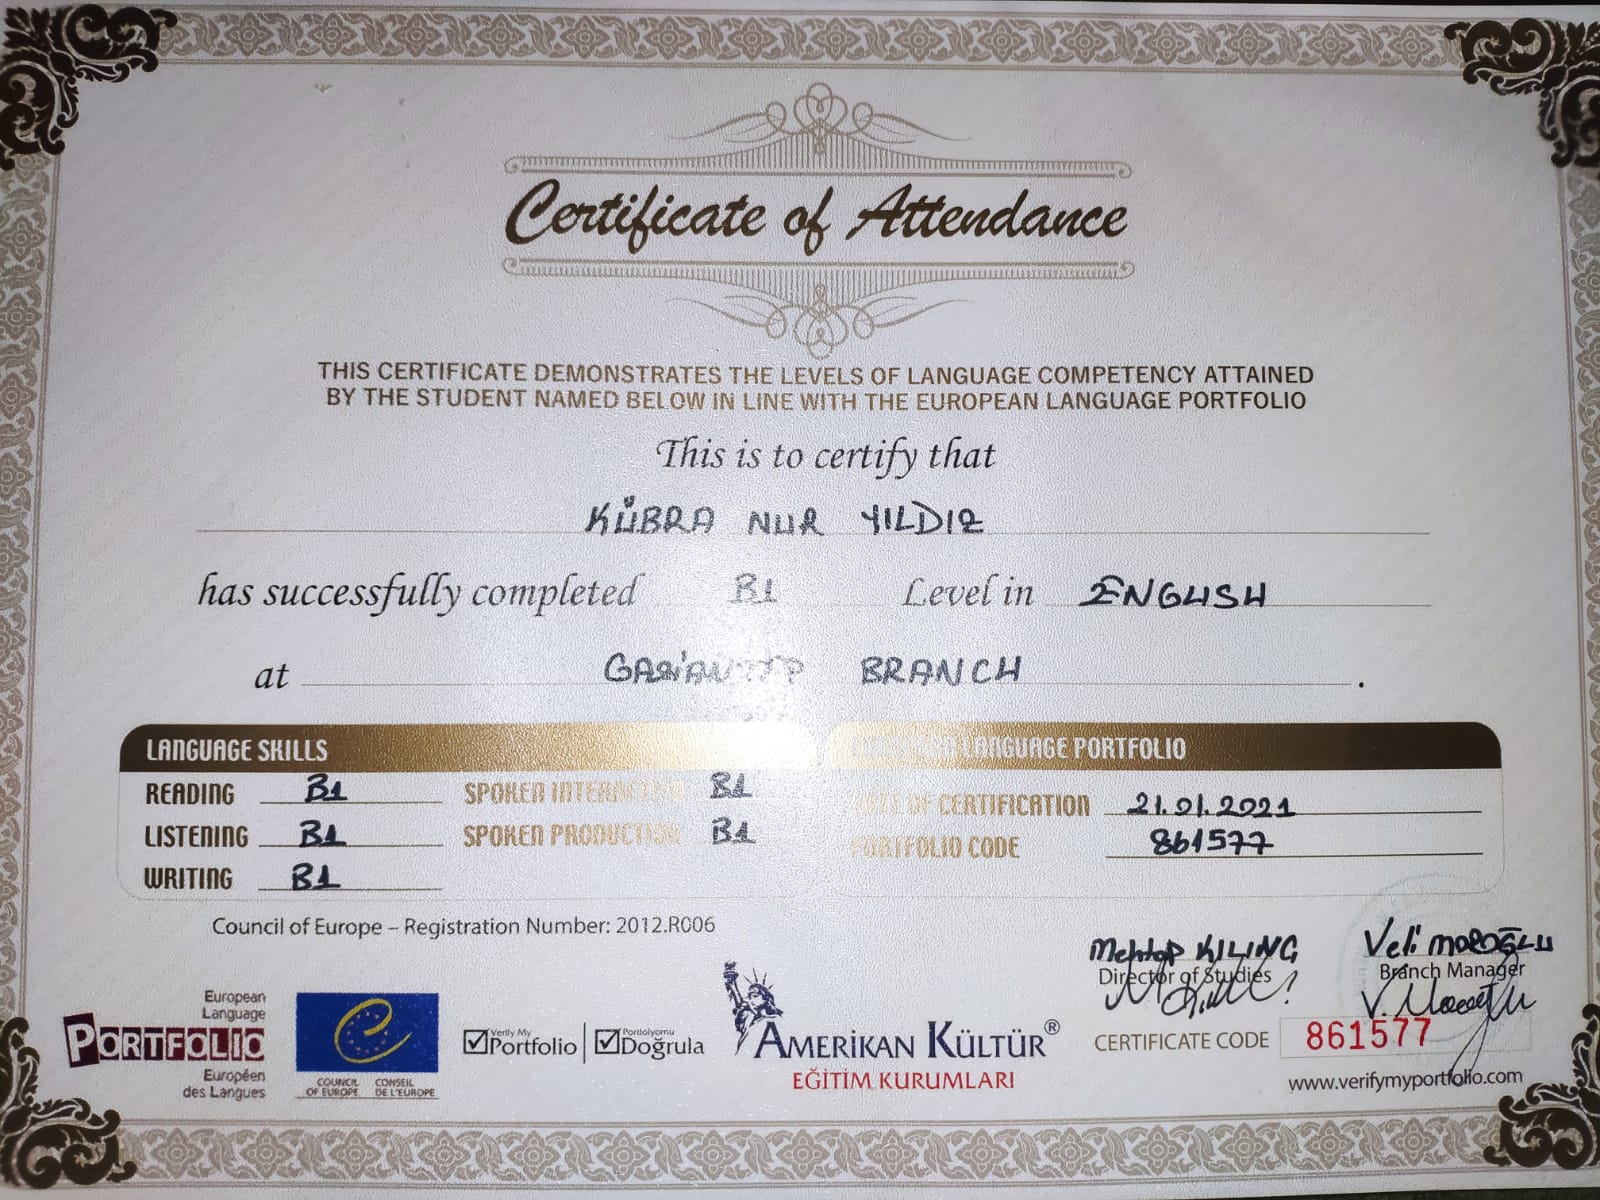 Certificate of Attendance
THIS CERTIFICATE DEMONSTRATES THE LEVELS OF LANGUAGE COMPETENCY ATTAINED
BY THE STUDENT NAMED BELOW IN LINE WITH THE EUROPEAN LANGUAGE PORTFOLIO
This is to certify that
KÜBRA NUR YILDIZ
has successfully completed B1 Level in ENGLISH
at GAZİANTEP BRANCH .
LANGUAGE SKILLS
READING B1 SPOKEN INTERACTION B1
LISTENING B1 SPOKEN PRODUCTION B1
WRITING B1
EUROPEAN LANGUAGE PORTFOLIO
DATE OF CERTIFICATION 21.01.2021
PORTFOLIO CODE 861577
Council of Europe – Registration Number: 2012.R006
Mehtap KILINÇ
Director of Studies
Veli MOROĞLU
Branch Manager
European
Language
PORTFOLIO
Européen
des Langues
COUNCIL OF EUROPE
CONSEIL DE L'EUROPE
Verify My
Portfolio
Portfolyomu
Doğrula
AMERİKAN KÜLTÜR®
EĞİTİM KURUMLARI
CERTIFICATE CODE 861577
www.verifymyportfolio.com